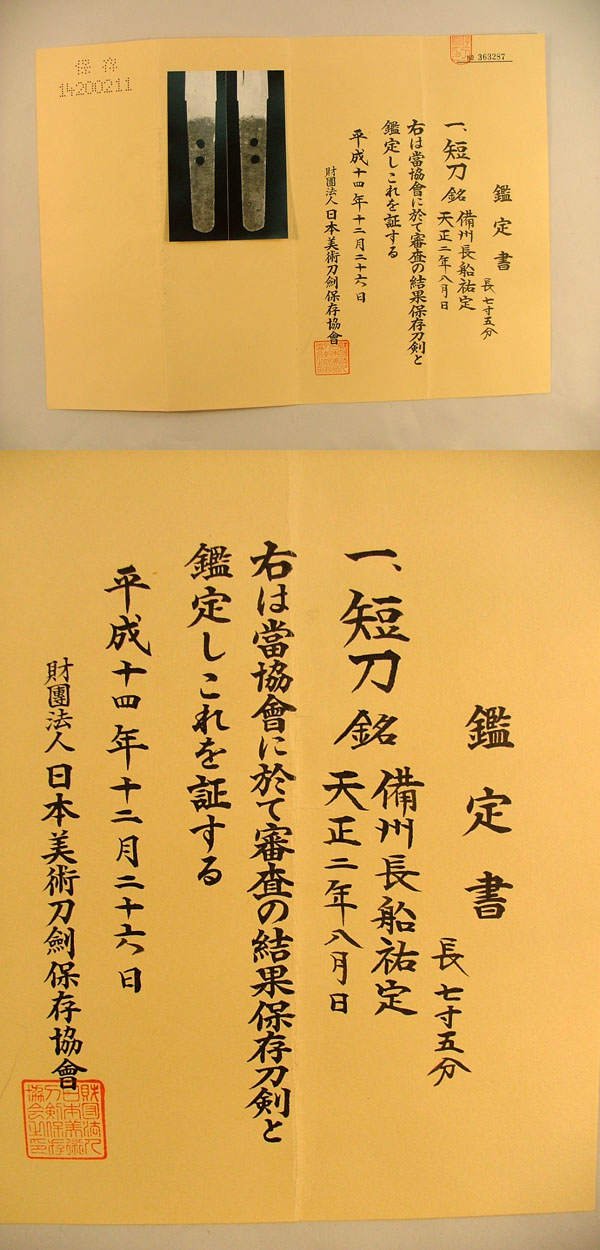 № 363287
鑑定書
長 七寸五分
一、短刀 銘 備州長船祐定
天正二年八月日
右は當協會に於て審査の結果保存刀剣と
鑑定しこれを証する
平成十四年十二月二十六日
財團法人 日本美術刀劍保存協會
保存
14200211
鑑定書
長 七寸五分
一、短刀 銘 備州長船祐定
天正二年八月日
右は當協會に於て審査の結果保存刀剣と
鑑定しこれを証する
平成十四年十二月二十六日
財團法人 日本美術刀劍保存協會